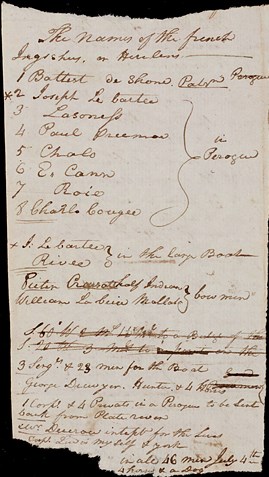 The Names of the french
Ingishees, or Hirelens—
1 Battert de Shone, Patrn Perogue
*2 Joseph Le bartee
3 Lasoness
4 Paul Preemor
5 Chalo
6 E. Cann
7 Roie
8 Charlo Cougee
in
Perogue
* J: Le bartee
Rivee } in the large Boat
Peter Crousatt half Indian
William La Beice Mallat } bow men
3 Sergts & 23 men for the Boat
George Drewyer. Hunter & 4 Horses
1 Corpl & 4 Privates in a Perogue to be Sent
back from Plate river
Mr. Dueron inteptr for the Sues
Capt. Lewis my Self & york
in all 46 men July 4th
4 horses & a Dog